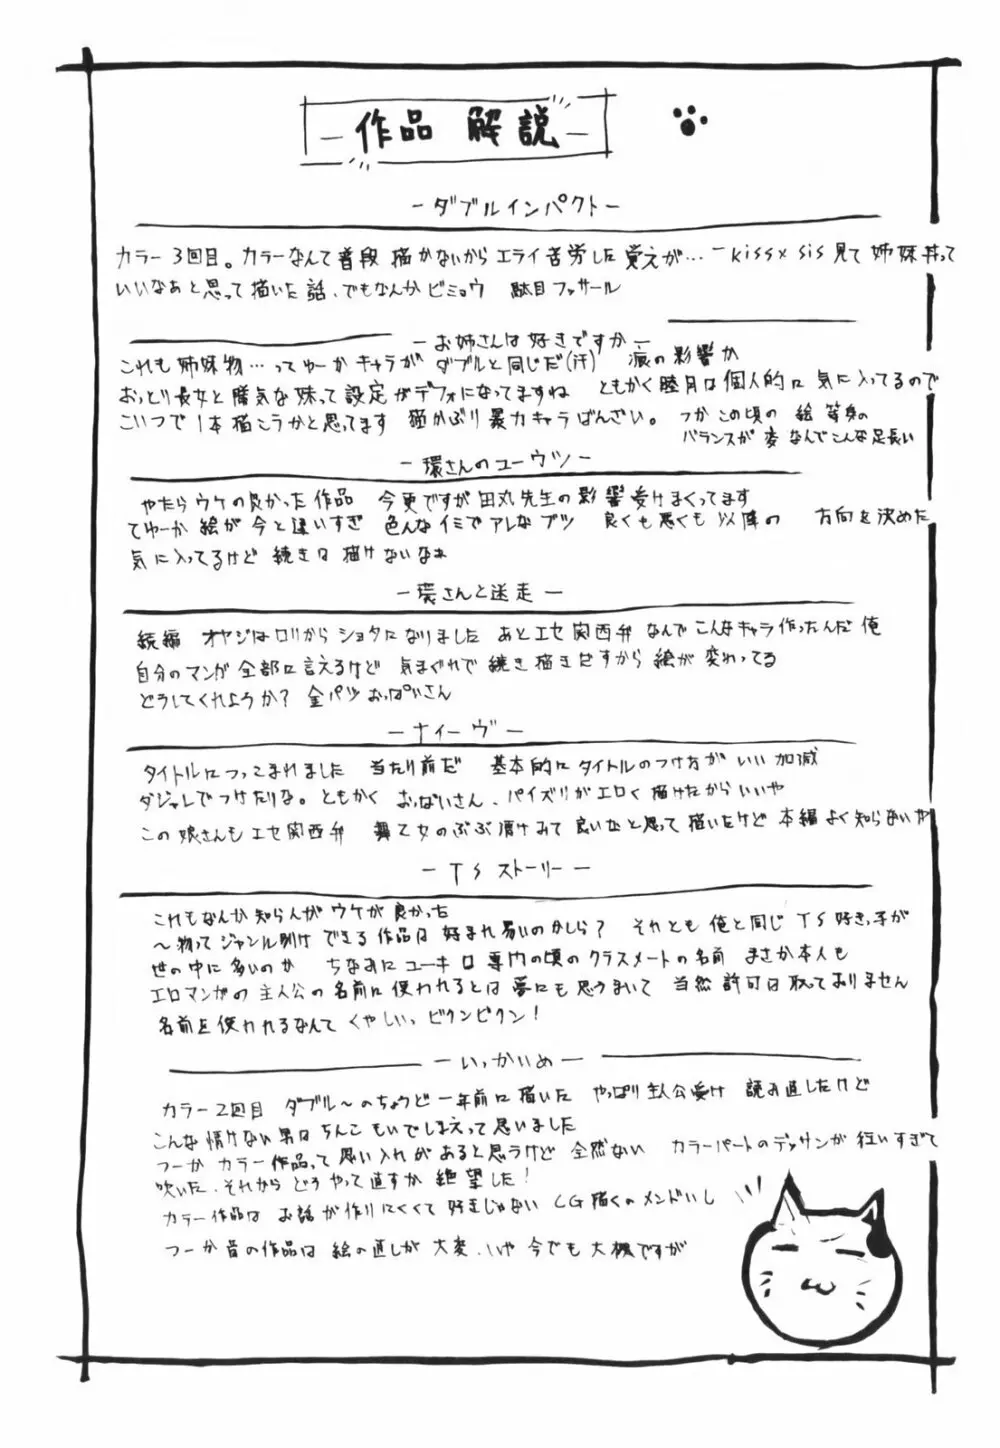 作品 解説
ーダブルインパクトー
カラー3回目。カラーなんて普段描かないからエライ苦労した覚えが… kiss×sis見て姉妹丼って
いいなあと思って描いた話、でもなんかビミョウ 駄目ファサール
ーお姉さんは好きですかー
これも姉妹物…ってゆーかキャラがダブルと同じだ(汗) 痕の影響か
おっとり長女と勝気な妹って設定がデフォになってますね ともかく睦月は個人的に気に入ってるので
こいつで1本描こうかと思ってます 猫かぶり暴力キャラばんざい。 つかこの頃の絵 等身の
バランスが変 なんでこんな足長い
ー環さんのユーウツー
やたらウケの良かった作品 今更ですが田丸先生の影響受けまくってます
てゆーか絵が今と違いすぎ 色んなイミでアレなブツ 良くも悪くも以降の 方向を決めた
気に入ってるけど続きは描けないなぁ
ー環さんと迷走ー
続編 オヤジはロリからショタになりました あとエセ関西弁 なんでこんなキャラ作ったんだ俺
自分のマンガ全部に言えるけど 気まぐれで続き描きだすから絵が変わってる
どうしてくれようか? 金パツおっぱいさん
ーナイーヴー
タイトルにつっこまれました 当たり前だ 基本的にタイトルのつけ方がいい加減
ダジャレでつけたりな。ともかくおっぱいさん、パイズリがエロく描けたからいいや
この娘さんもエセ関西弁 舞乙女のぶぶ漬けみて良いなと思って描いたけど本編よく知らないや
ーTSストーリーー
これもなんか知らんがウケが良かった
〜物ってジャンル別けできる作品は好まれ易いのかしら? それとも俺と同じTS好きっ手が
世の中に多いのか ちなみにユーキは専門の頃のクラスメートの名前 まさか本人も
エロマンガの主人公の名前に使われるとは夢にも思うまいて 当然許可は取っておりません
名前を使われるなんてくやしいっ、ビクンビクン!
ーいっかいめー
カラー2回目 ダブル〜のちょうど一年前に描いた やっぱり主人公受け 読み直したけど
こんな情けない男はちんこもいでしまえって思いました
つーかカラー作品って思い入れがあると思うけど全然ない カラーパートのデッサンが狂いすぎて
吹いた、それからどうやって直すか絶望した!
カラー作品はお話が作りにくくて好きじゃない CG描くのメンドいし
つーか昔の作品は絵の直しが大変、いや今でも大概ですが